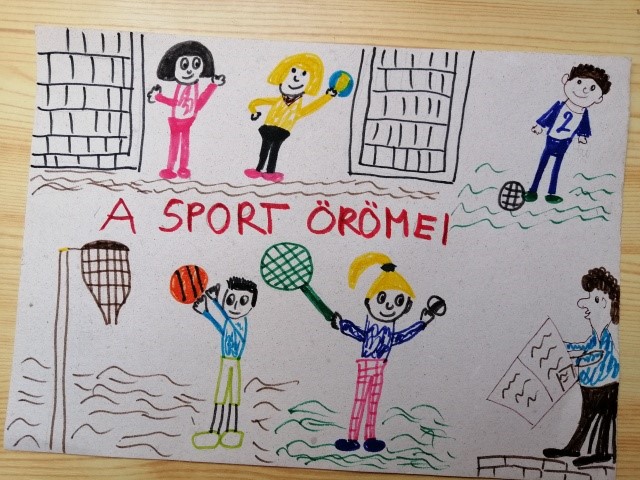 2
A SPORT ÖRÖMEI